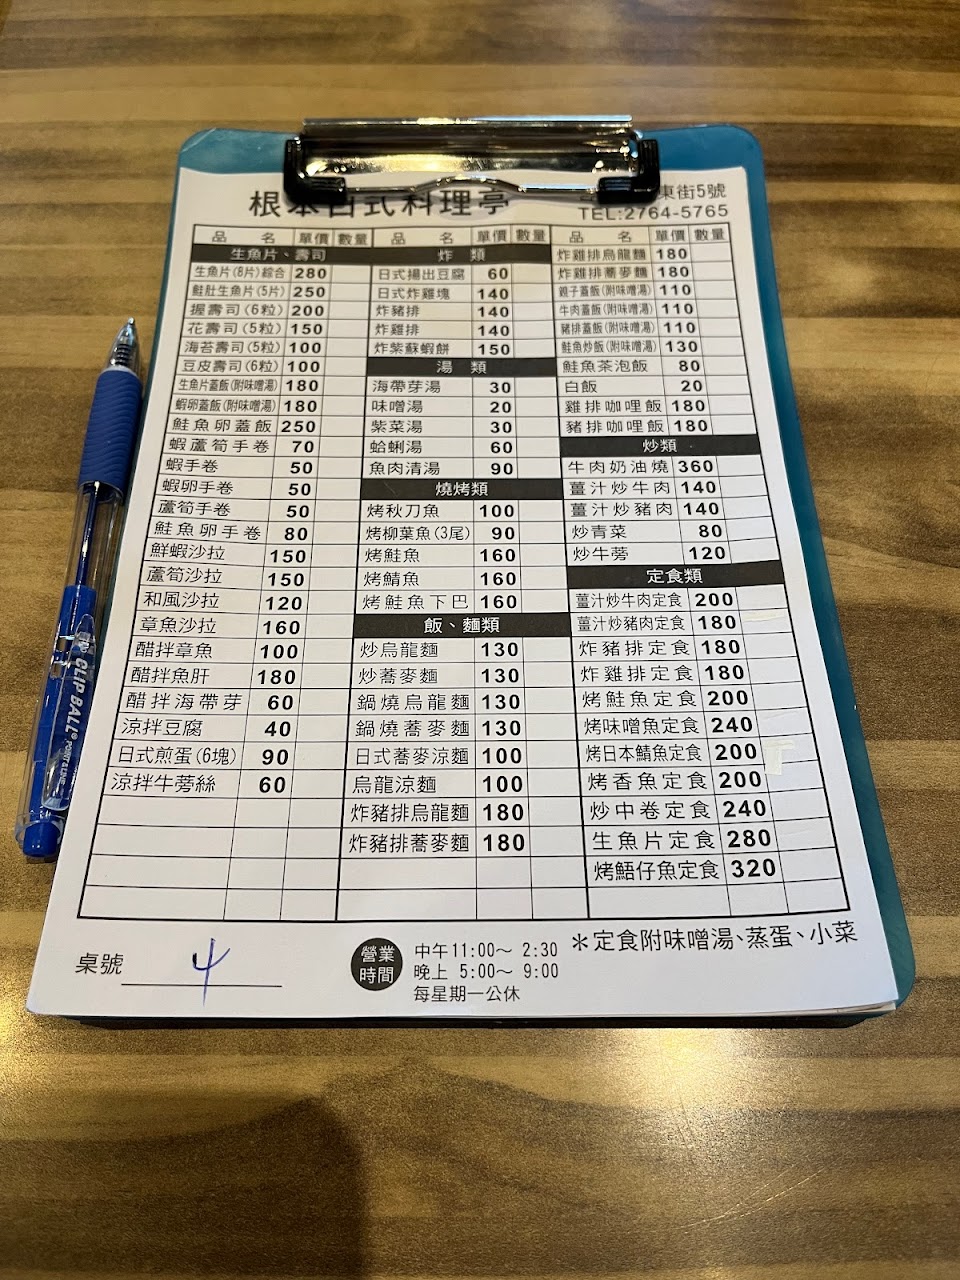 根本日式料理亭
東街5號
TEL:2764-5765
品 名 單價 數量
生魚片、壽司
生魚片(8片)綜合 280
鮭肚生魚片(5片) 250
握壽司(6粒) 200
花壽司(5粒) 150
海苔壽司(5粒) 100
豆皮壽司(6粒) 100
生魚片蓋飯(附味噌湯) 180
蝦卵蓋飯(附味噌湯) 180
鮭魚卵蓋飯 250
蝦蘆筍手卷 70
蝦手卷 50
蝦卵手卷 50
蘆筍手卷 50
鮭魚卵手卷 80
鮮蝦沙拉 150
蘆筍沙拉 150
和風沙拉 120
章魚沙拉 160
醋拌章魚 100
醋拌魚肝 180
醋拌海帶芽 60
涼拌豆腐 40
日式煎蛋(6塊) 90
涼拌牛蒡絲 60
品 名 單價 數量
炸 類
日式揚出豆腐 60
日式炸雞塊 140
炸豬排 140
炸雞排 140
炸紫蘇蝦餅 150
湯 類
海帶芽湯 30
味噌湯 20
紫菜湯 30
蛤蜊湯 60
魚肉清湯 90
燒烤類
烤秋刀魚 100
烤柳葉魚(3尾) 90
烤鮭魚 160
烤鯖魚 160
烤鮭魚下巴 160
飯、麵類
炒烏龍麵 130
炒蕎麥麵 130
鍋燒烏龍麵 130
鍋燒蕎麥麵 130
日式蕎麥涼麵 100
烏龍涼麵 100
炸豬排烏龍麵 180
炸豬排蕎麥麵 180
品 名 單價 數量
炸雞排烏龍麵 180
炸雞排蕎麥麵 180
親子蓋飯(附味噌湯) 110
牛肉蓋飯(附味噌湯) 110
豬排蓋飯(附味噌湯) 110
鮭魚炒飯(附味噌湯) 130
鮭魚茶泡飯 80
白飯 20
雞排咖哩飯 180
豬排咖哩飯 180
炒類
牛肉奶油燒 360
薑汁炒牛肉 140
薑汁炒豬肉 140
炒青菜 80
炒牛蒡 120
定食類
薑汁炒牛肉定食 200
薑汁炒豬肉定食 180
炸豬排定食 180
炸雞排定食 180
烤鮭魚定食 200
烤味噌魚定食 240
烤日本鯖魚定食 200
烤香魚定食 200
炒中卷定食 240
生魚片定食 280
烤鯃仔魚定食 320
桌號 4
營業時間
中午11:00～ 2:30
晚上 5:00～ 9:00
每星期一公休
＊定食附味噌湯、蒸蛋、小菜
CLIP BALL